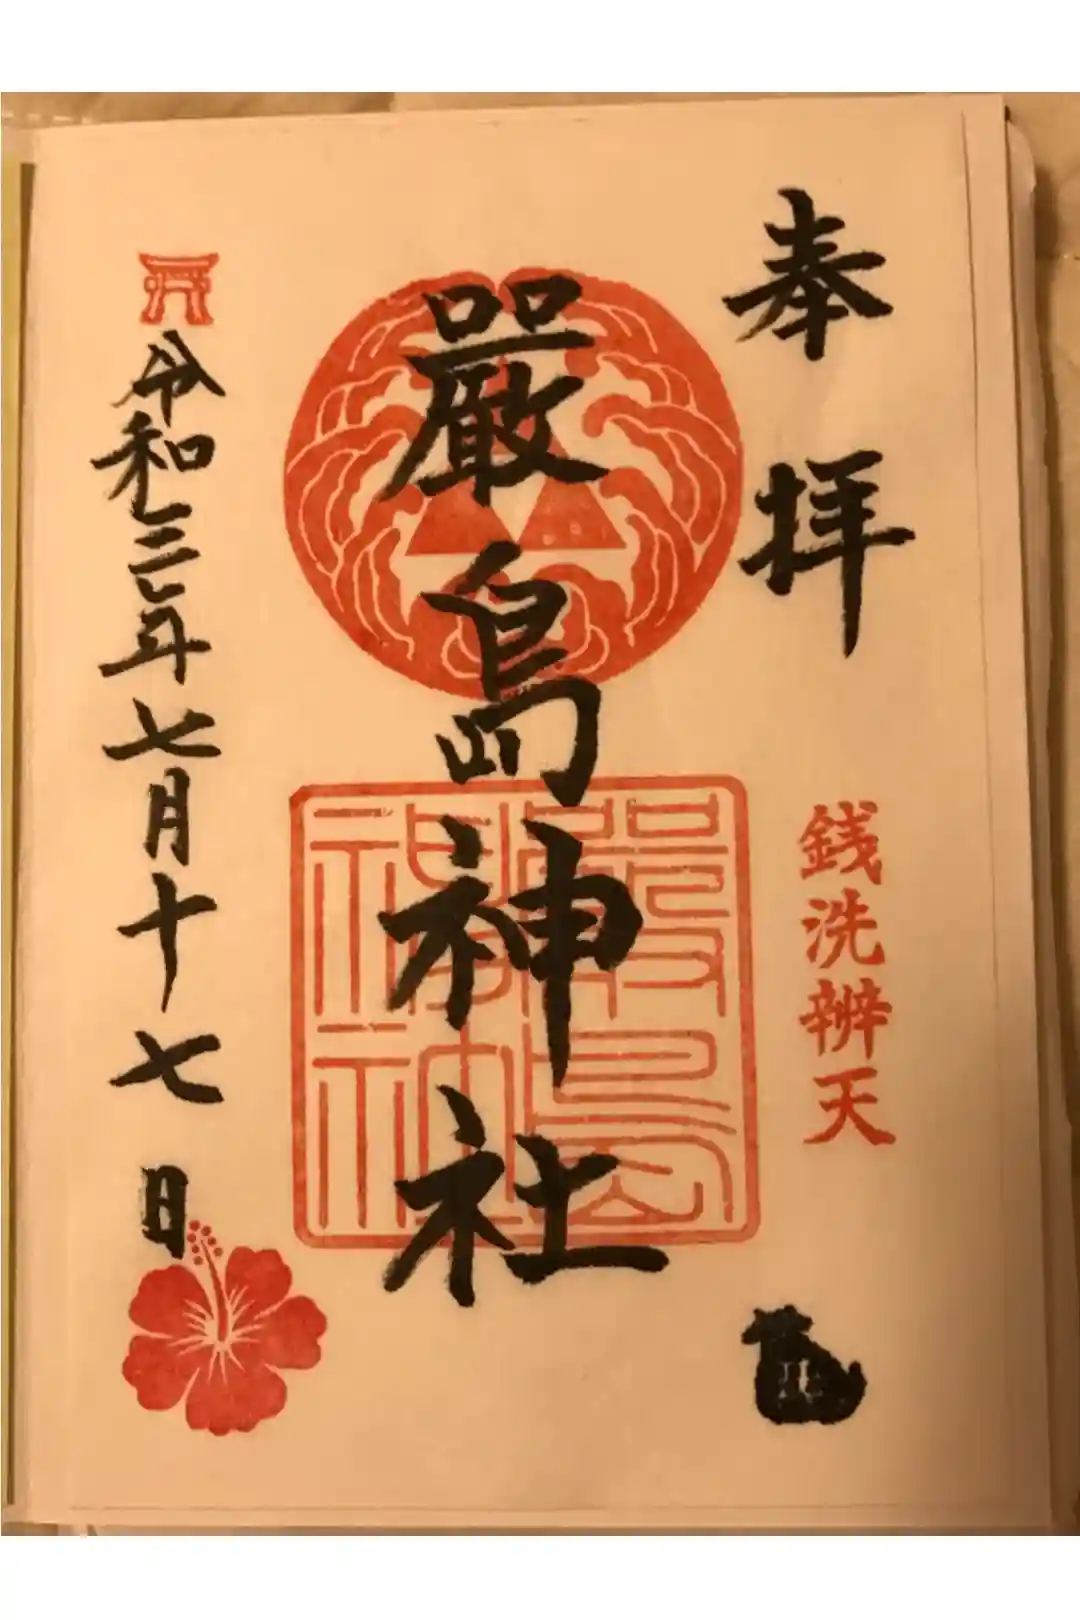 奉拝
銭洗辨天
嚴島神社
嚴島神社
令和三年七月十七日